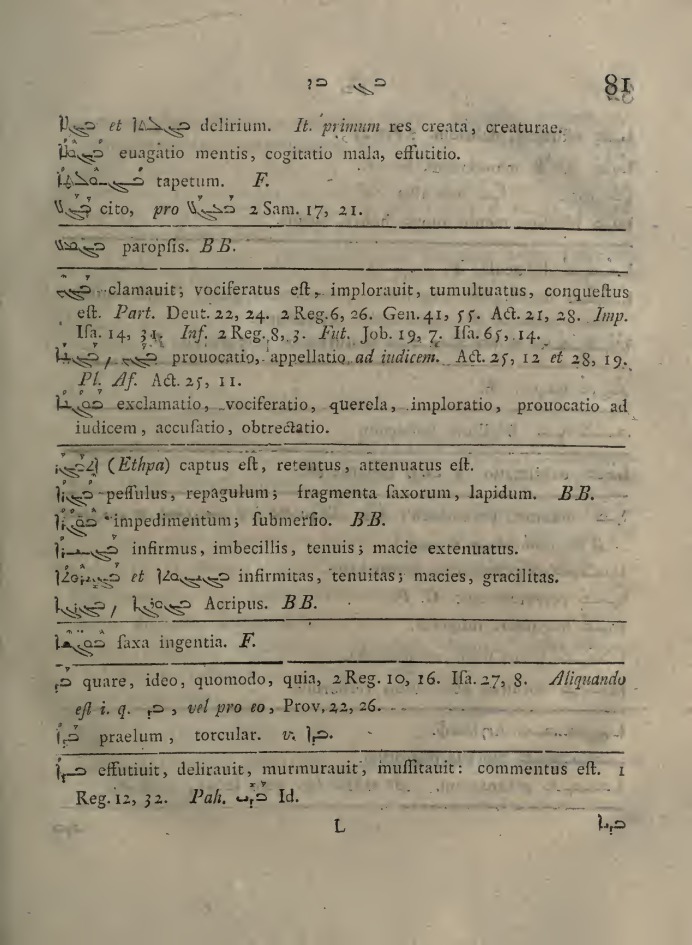 ܒܓ ܒܕ 81
et delirium. It. primum res creata, creaturae.
euagatio mentis, cogitatio mala, effutitio.
tapetum. F.
cito, pro 2 Sam. 17, 21.
paropſis. BB.
ܒܓܢ clamauit; vociferatus eſt, implorauit, tumultuatus, conqueſtus
eſt. Part. Deut. 22, 24. 2 Reg. 6, 26. Gen. 41, 55. Act. 21, 28. Imp.
Iſa. 14, 31. Inf. 2 Reg. 8, 3. Fut. Job. 19, 7. Iſa. 65, 14.
ܒܓܢܐ, ܒܓܢ prouocatio, appellatio ad iudicem. Act. 25, 12 et 28, 19.
Pl. Af. Act. 25, 11.
ܒܘܓܢܐ exclamatio, vociferatio, querela, imploratio, prouocatio ad
iudicem, accuſatio, obtrectatio.
ܐܬܒܓܪ (Ethpa) captus eſt, retentus, attenuatus eſt.
ܒܓܪܐ peſſulus, repagulum; fragmenta ſaxorum, lapidum. BB.
ܒܘܓܪܐ impedimentum; ſubmerſio. BB.
ܒܓܝܪܐ infirmus, imbecillis, tenuis; macie extenuatus.
ܒܓܝܪܘܬܐ et infirmitas, tenuitas; macies, gracilitas.
Acripus. BB.
ſaxa ingentia. F.
ܒܕ quare, ideo, quomodo, quia, 2 Reg. 10, 16. Iſa. 27, 8. Aliquando
eſt i. q. ܒܕ, vel pro eo, Prov. 22, 26.
ܒܕܐ praelum, torcular. v. ܒܕܐ.
ܒܕܐ effutiuit, delirauit, murmurauit, muſſitauit: commentus eſt. 1
Reg. 12, 32. Pah. ܒܕܝ Id.
L